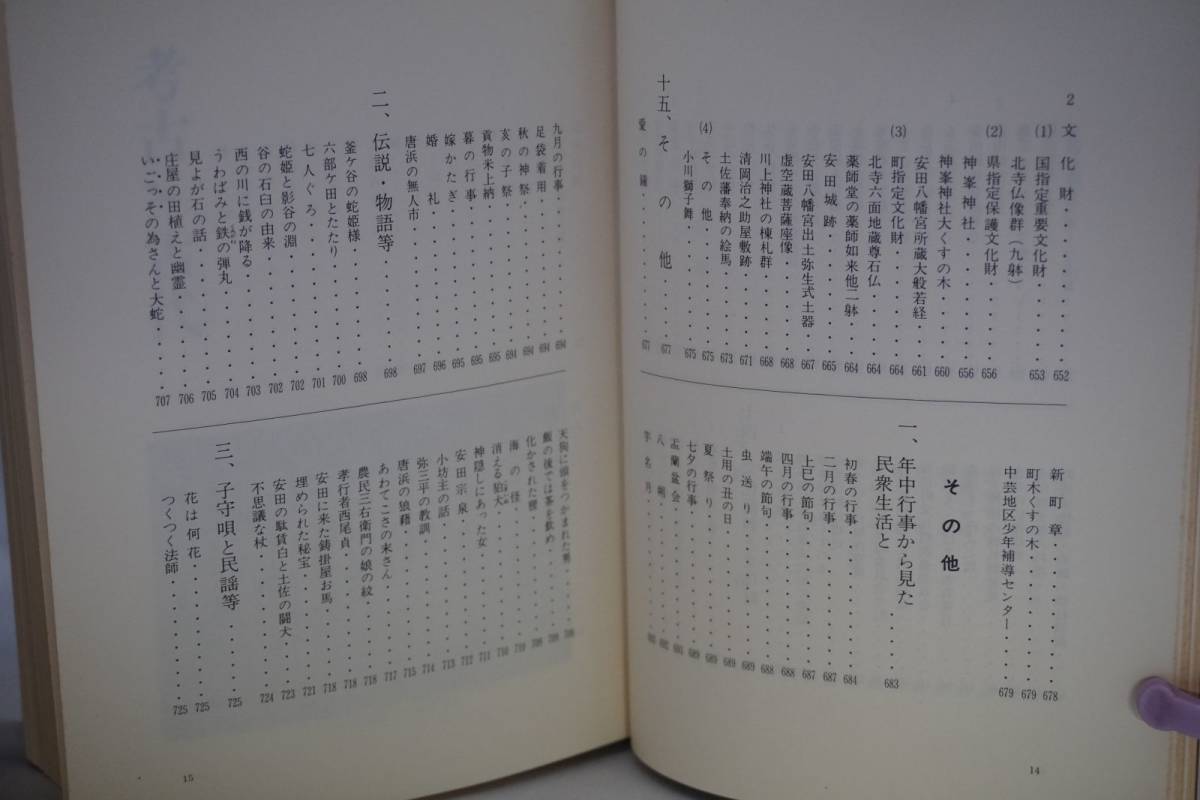 2 文化財 652
(1) 国指定重要文化財 653
北寺仏像群(九躰)
(2) 県指定保護文化財 656
神峯神社 656
神峯神社大くすの木 660
安田八幡宮所蔵大般若経 661
(3) 町指定文化財 664
北寺六面地蔵尊石仏 664
薬師堂の薬師如来他二躰 664
安田城跡 665
安田八幡宮出土弥生式土器 667
虚空蔵菩薩座像 668
川上神社の棟札群 668
清岡治之助屋敷跡 671
土佐藩奉納の絵馬 673
(4) その他 675
小川獅子舞 675
十五、その他 677
愛の鐘 677
新町章 678
町木くすの木 679
中芸地区少年補導センター 679
その他
一、年中行事から見た
民衆生活と 683
初春の行事 684
二月の行事 687
上巳の節句 687
四月の行事 688
端午の節句 688
虫送り 689
土用の丑の日 689
夏祭り 689
七夕の行事 689
盂蘭盆会
八朔
芋名月
14
九月の行事 694
足袋着用 694
秋の神祭 694
亥の子祭 694
貢物米上納 695
暮の行事 695
嫁かたぎ 695
婚礼 696
唐浜の無人市 697
二、伝説・物語等 698
釜ケ谷の蛇姫様 698
六部ケ田とたたり 700
七人ぐろ 701
蛇姫と影谷の淵 702
谷の石臼の由来 702
西の川に銭が降る 703
うわばみと鉄の弾丸 704
見よが石の話 705
庄屋の田植えと幽霊 706
いごっその為さんと大蛇 707
天狗に頭をつかまれた男
飯の後では茶を飲め 709
化かされた狸 709
海の怪 710
消える狛犬 710
神隠しにあった女 711
安田宗泉 712
小坊主の話 713
弥三平の教訓 714
唐浜の狼藉 715
あわてこさの末さん 717
農民三右衛門の娘の紋 718
孝行者西尾貞 718
安田に来た鋳掛屋お馬 718
埋められた秘宝 721
安田の駄賃白と土佐の闘犬 723
不思議な杖 724
三、子守唄と民謡等 725
花は何花 725
つくつく法師 725
15